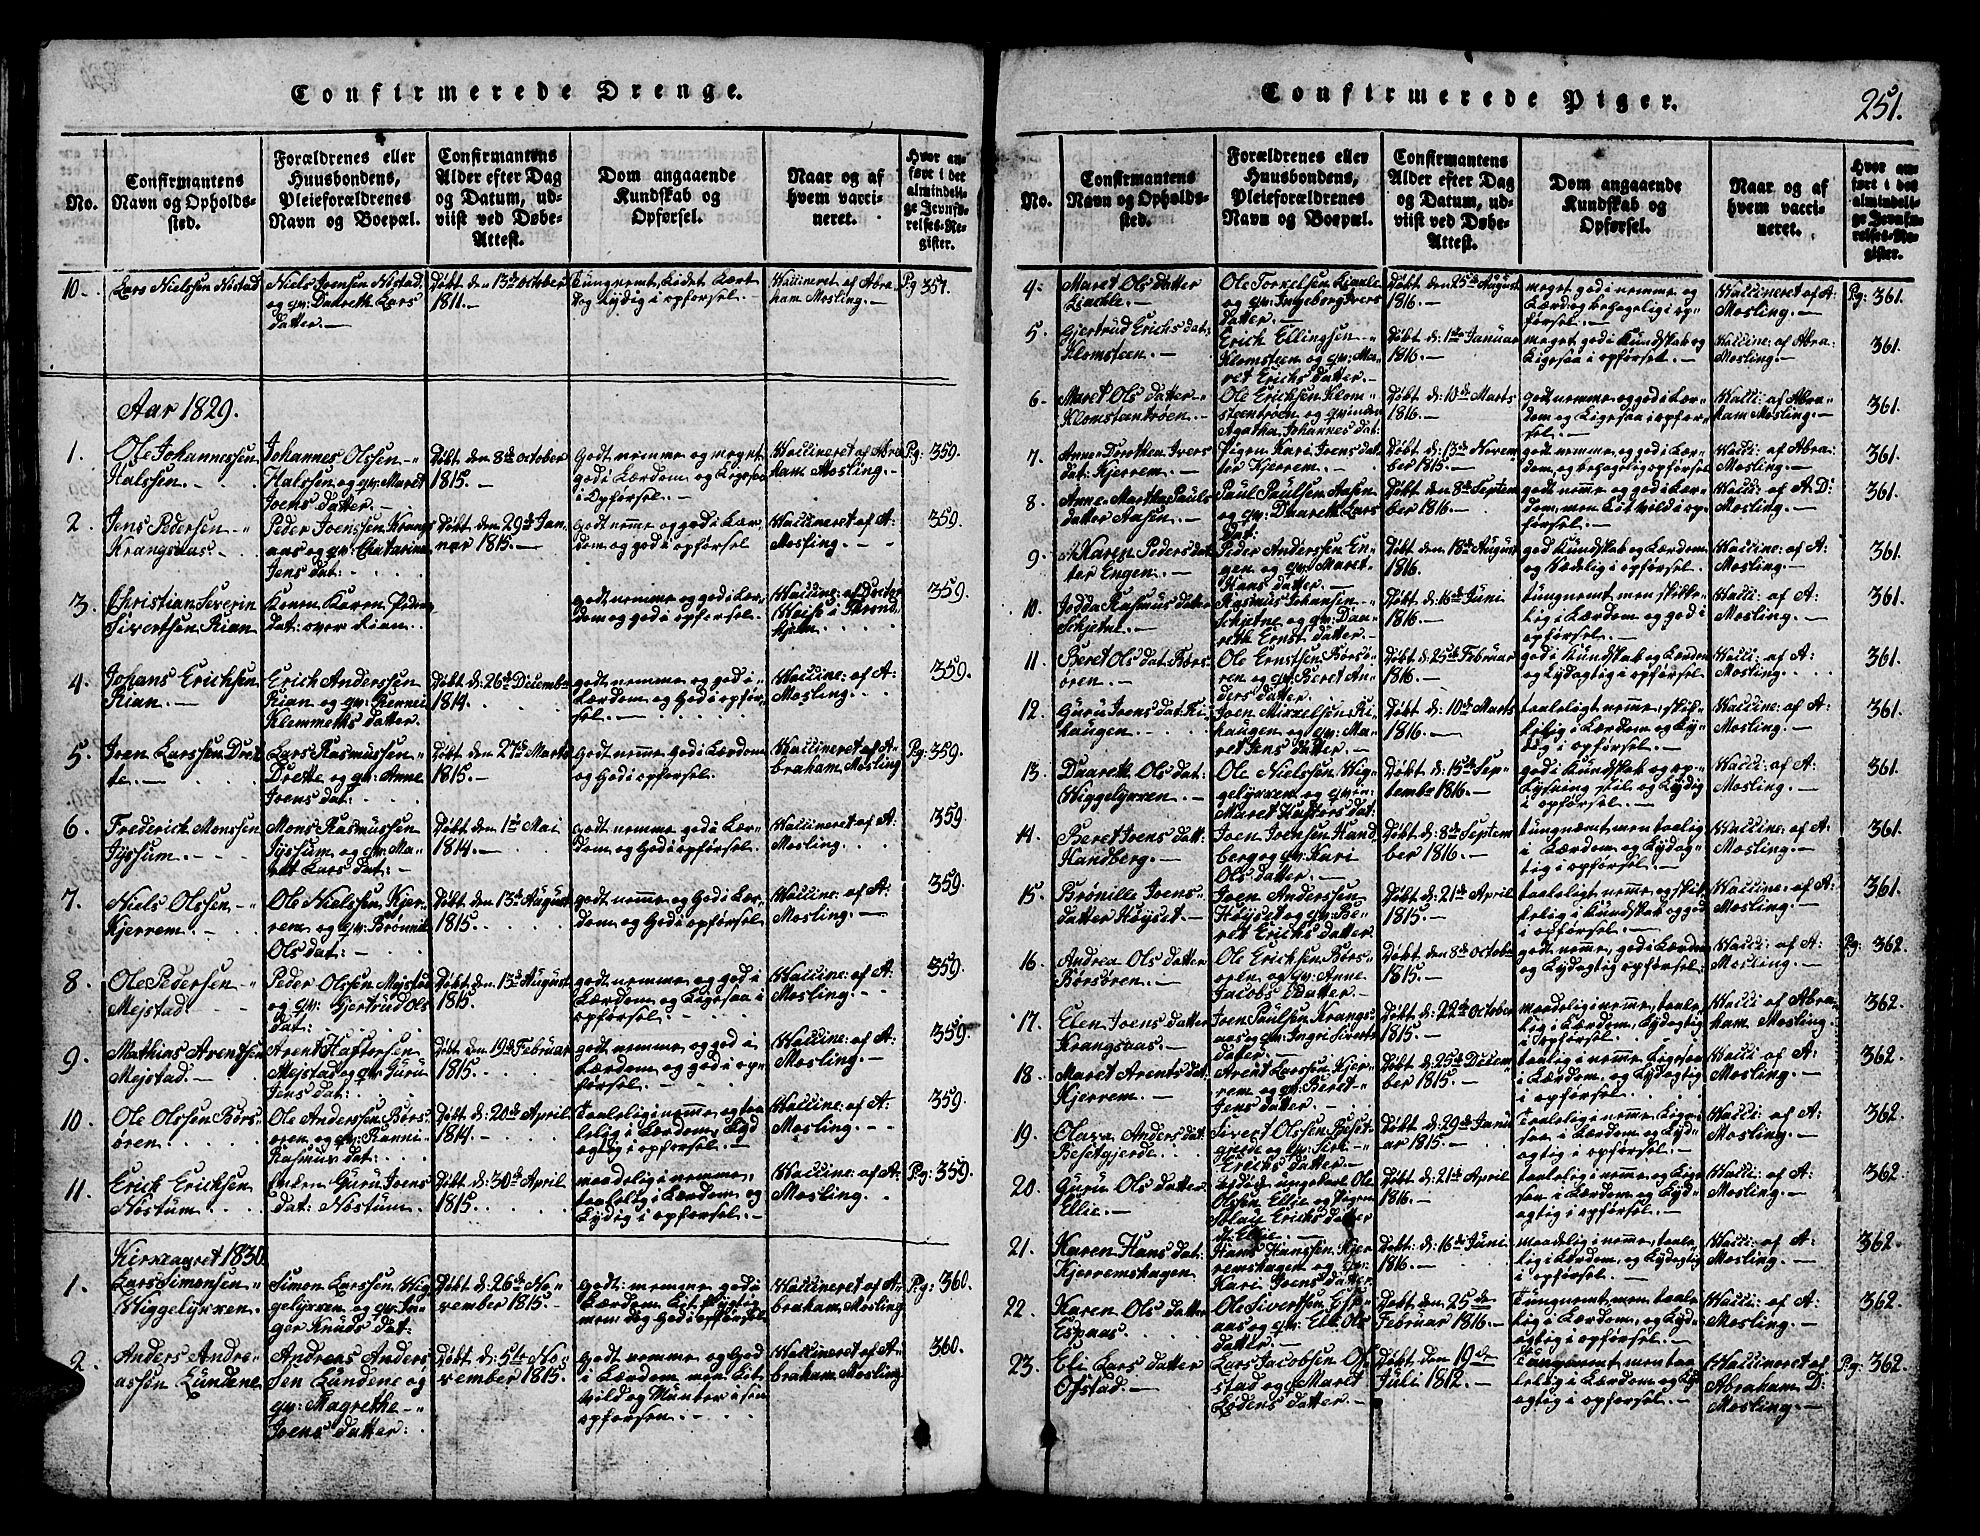 Confirmerede Drenge.
No.
Confirmantens
Navn og Opholds-
sted.
Forældrenes eller
Huusbondens,
Pleieforældrenes
Navn og Boepæl.
Confirmantens
Alder efter Dag
og Datum, ud-
viist ved Døbe-
Attest.
Dom angaaende
Kundskab og
Opførsel.
Naar og af
hvem vacci-
neret.
Hvor an-
ført i det
almindeli-
ge Jevnfø-
relses-Re-
gister.
10.
Lars Nielssen Nistad
Niels Joensen Nistad
og qv: Daareth Lars
datter.
Døbt den 13de october
1811.
Tungnemt Lidet Lært
og Lydig i opførsel.
Vaccineret af Abra-
ham Mosling.
Pg 357.
Aar 1829.
1.
Ole Johannessen
Halssen.
Johannes Olssen
Halssen og qv: Maret
Joens datter.
Døbt den 8de october
1815.
Godt nemme og meget
god i Lærdom og Ligesaa
i Opførsel.
Vaccineret af Abra
ham Mosling.
Pg: 359.
2.
Jens Pedersen
Krangsaas
Peder Joenssen Krangs
aas og qv: Chatarina
Jens dat:
Døbt den 29de Jan
nar 1815.
Godt nemme og god i Lær-
dom og god i opførsel
Vaccineret af A:
Mosling.
359.
3.
Christian Severin
Sivertsen Rian
Konen Karen Peders
dat: over Rian
godt nemme og god i Lær-
dom og god i opførsel.
Vaccine: af Docter
Weiss i Thrond
hjem
359.
4.
Johans Erichsen
Rian.
Erich Anderssen
Rian og qv: Rennei
Klemmeths datter.
Døbt den 26de Decembr
1814.
godt nemme og god i
Lærdom og God i opfør-
sel.
Vaccine: af A:
Mosling.
359.
5.
Joen Larssen Dret
te.
Lars Rasmussen
Drette og qv: Anne
Joens dat:
Døbt den 27de Marts
1815.
Godt nemme God i Lærdom
og God i opførsel.
Vaccineret af A-
braham Mosling
Pg: 359.
6.
Frederich Monssen
Jyssum.
Mons Rasmussen
Jyssum og qv: Ma-
ret Lars dat:
Døbt den 1ste Mai
1814.
godt nemme god i Lær-
dom og God i opførsel.
Vaccine: af A:
Mosling.
359.
7.
Niels Olssen
Kjerrem.
Ole Nielssen Kjer-
rem og qv: Brønnil
Ols dat:
Døbt den 13de August
1815.
godt nemme og God i Lær-
dom og God i opførsel.
Vaccine: af A:
Mosling.
359.
8.
Ole Pedersen
Mejstad.
Peder Olssen Mejstad
og qv: Gjertrud Ols
dat:
Døbt den 13de August
1815.
godt nemme og god i
Lærdom og Ligesaa i
opførsel.
Vaccine: af A:
Mosling.
359.
9.
Mathias Arentsen
Mejstad.
Arent Haftorsen
Mejstad og qv: Guru
Jens dat:
Døbt den 19de Februar
1815.
godt nemme og god i
Lærdom og god i op-
førsel.
Vaccine: af A:
Mosling.
359.
10.
Ole Olssen Børs-
ören.
Ole Anderssen Børs-
ören og qv: Ranni
Rasmus dat:
Døbt d: 20de April
1814.
Taalelig i nemme og taa
lelig i Lærdom, Lyd
agtig i opførsel.
Vaccine: af A:
Mosling.
359.
11.
Erich Erichsen
Nostum.
Enken Guru Joens
dat: Nostum.
Døbt d: 30de April
1815.
maadelig i nemme,
taalelig i Lærdom og
Lydig i opførsel.
Vaccine: af A:
Mosling.
Pg: 359.
Kirkeaaret 1830.
1.
Lars Simonsen
Wiggelykken.
Simen Larssen Wig
gelykken og qv: In-
ger Knuds dat:
Døbt d: 26de No-
vember 1815.
godt nemme god i
Lærdom Lit
men og God i opførsel
Vaccineret af A-
braham Mosling
Pg: 360.
2.
Anders Andre-
assen Lundene
Andreas Anders
sen Lundene og
qv: Magrethe
Joens datter.
Døbt d: 5te No-
vember 1815.
Godt nemme og God
i Lærdom men Lit
vild og Munter i sin
opførsen.
Vaccineret af A-
braham Mosling
360.
Confirmerede Piger.
251.
No.
Confirmantens
Navn og Opholds-
sted.
Forældrenes eller
Huusbondens,
Pleieforældrenes
Navn og Boepæl.
Confirmantens
Alder efter Dag
og Datum, ud-
viist ved Døbe-
Attest.
Dom angaaende
Kundskab og
Opførsel.
Naar og af
hvem vacci-
neret.
Hvor an-
ført i det
almindeli-
ge Jevnfø-
relses-Re-
gister.
4.
Maret Ols datter
Ole Torkelsen
og qv: Ingeborg Ivers
datter.
Døbt d: 25de August
1816.
meget god i nemme og
Lærdog behagelig i op-
førsel.
Vaccineret af A:
Mosling.
Pg: 361.
5.
Gjertrud Erichs dat:
Klomsteen.
Erich Ellingsen
Klomsteen og qv: Ma-
ret Erichs datter.
Døbt d: 1ste Januar
1816.
meget god i Kundskab og
Ligesaa i opførsel.
Vaccine: af Abra
Mosling.
361.
6.
Maret Ols datter
Klomsteentrøen.
Ole Erichsen Klom-
steentrøen og qvinden
Agatha Johannes dat:
Døbt d: 10de Marts
1816.
god nemme og god i Lær-
dom og Ligesaa i opfør-
sel.
Vacci: af Abra-
ham Mosling.
361.
7.
Anne Dorethea Ivers
dat: Kjerrem.
Pigen Kari Joens dat
ter Kjerrem.
Døbt d: 13de Novem
ber 1815.
god nemme, og god i Lær-
dom, og behagelig opførsel
Vacci: af Abra:
Mosling.
361.
8.
Anne Martha Pauls
datter Aasen
Paul Paulsen Aasen
og qv: Daareth Lars
dat:
Døbt den 8de Septem
ber 1816.
godt nemme og god i Lær-
dom, men Lit vild i op-
førsel.
Vacci: af A: D:
Mosling.
361.
9.
Karen Peders dat
ter Engen.
Peder Anderssen En-
gen og qv: Maret
Hans datter.
Døbt den 18de August
1816.
god Kundskab og Lærdom,
og Sædelig i opførsel.
Vaccine: af A:
Mosling.
361.
10.
Jødda Rasmus datter
Schjetne.
Rasmus Johansen
Schjetne og qv: Daa-
reth Ernst datter.
Døbt d: 16de Juni
1816.
tungnemt, men skikke-
lig i Lærdom og god i
opførsel.
Vacci: af A:
Mosling.
361.
11.
Beret Ols dat: Børs-
ören.
Ole Ernstsen Børsö-
ren og qv: Beret An-
ders datter.
Døbt d: 25de Februar
1816.
god i Kundskab og Lærdom
og Lydagtig i opførsel.
Vaccine: af A:
Mosling.
361.
12.
Guru Joens dat: Ki-
haugen.
Joen Mikkelsen Ki-
haugen og qv: Ma-
ret Jens datter.
Døbt d: 10de Marts
1816.
taaleligt nemme, skik-
kelig i Lærdom og Ly-
dig i opførsel.
Vaccine: af A:
Mosling.
361.
13.
Daareth Ols dat:
Wiggelykken.
Ole Nielssen Wig-
gelykken og qvin:
Maret Haftors dat:
Døbt d: 15de Sep-
tember 1816.
god i Kundskab og op-
lysning stil og Lydig
i opførsel.
Vacci: af A:
Mosling.
361.
14.
Beret Joens dat:
Handberg.
Joen Joensen Hand
berg og qv: Kari
Ols datter.
Døbt d: 8de Septem
ber 1816.
tungnæmt, men taalig
i Lærdom og Lydag-
tig i opførsel.
Vaccine: af A:
Mosling.
361.
15.
Brønille Joens-
datter Höyset.
Joen Anderssen
Höyset og qv: Be-
ret Erichs datter.
Døbt d: 21de April
1815.
taaleligt nemme, og skik-
kelig i Kundskab og god
i opførsel.
Vaccine: af A:
Mosling.
361.
16.
Andrea Ols datter
Børsören.
Ole Erichsen Børs-
ören, og qv: Anne
Jacobs datter.
Døbt d: 8de Octobr
1815.
godt nemme, god i Lærdom
og Lydagtig opførsel.
Vacci: af A:
Mosling.
Pg: 362.
17.
Elen Joens datter
Krangsaas.
Joen Paulsen Krangs
aas og qv: Ingri Siverts
datter.
Døbt d: 22de October
1815.
maadelig i nemme, taale-
lig i Lærdom, Lydagtig
i opførsel.
Vacci: af Abra
ham Mosling.
362.
18.
Maret Arents dat:
Kjerrem.
Arent Larssen Kjer-
rem og qv: Beret
Jens datter.
Døbt d: 25de Decem-
ber 1815.
taalig i nemme, Ligesaa
i Lærdom, og Lydagtig
i opførsel.
Vacci: af A:
Mosling.
362.
19.
Olava Anders dat:
Besetgjerde.
Sivert Olssen Beset-
gjerde og qv: Siri
Erichs datter.
Døbt d: 29de Janu
ar 1815.
Taalelig i nemme, Lige-
saa i Lærdom og Lyd-
agtig i opførsel.
Vacci: af A:
Mosling.
362.
20.
Guru Ols datter
Ellie.
Ledige ungekarl Ole
Olssen Ellie og Pigen
Erichs datter
Ellie.
Døbt d: 21de April
1816.
taalelig i nemme og Lige
saa i Lærdom, og Lyd-
agtig i opførsel.
Vacci: af A:
Mosling.
362.
21.
Karen Hans dat:
Kjerremshagen
Hans Hanssen Kjer
remshagen og qv:
Kari Joens datter
Døbt d: 16de Juni
1816.
maadelig i nemme, taale-
lig i Lærdom, og Lydagtig
i opførsel.
Vacci: af A:
Mosling.
362.
22.
Karen Ols datter
Espaas.
Ole Sivertsen Esp-
aas og qv: Eli Ols
datter.
Døbt den 25de
Februar 1816.
Tungnemt, men taale
lig i Lærdom, og Lyd-
agtig i opførsel.
Vacci: af A:
Mosling.
362.
23.
Eli Lars datter
Ofstad.
Lars Jacobsen Of-
stad og Maret
Lodens datter.
Døbt den 19de
Juli 1812.
Tungnemt, men taa-
lelig i Lærdom, og Lyd
agtig i opførsel.
Vaccineret af
Abraham D:
Mosling.
Pg: 362.